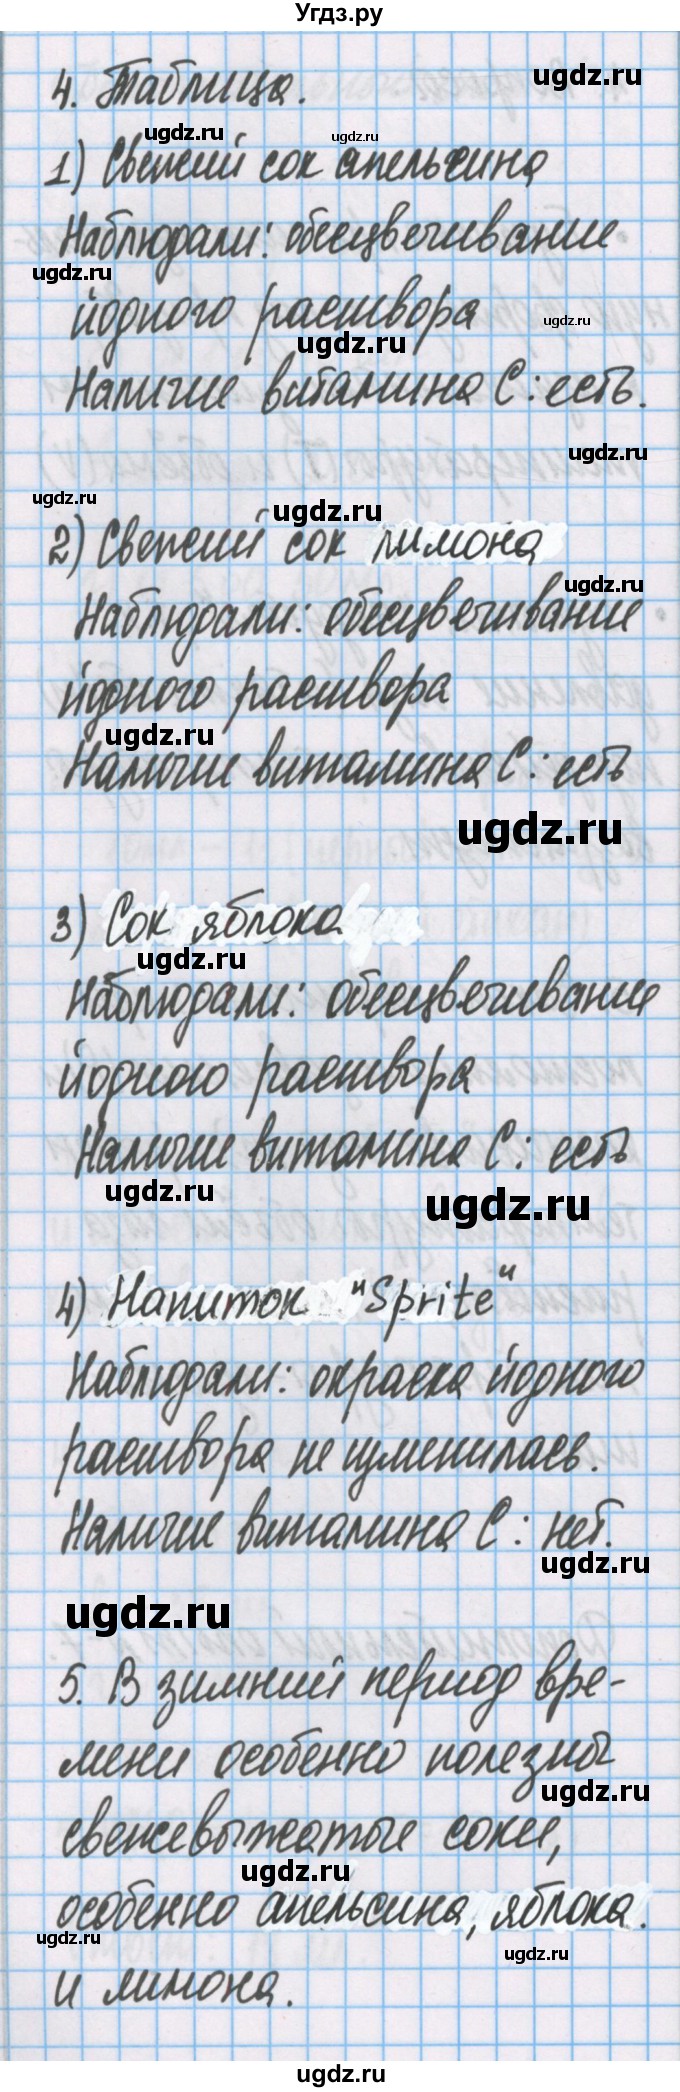 Угдз.ру
ugdz.ru
4. Таблица.
ugdz.ru ugdz.ru
1) Свежий сок апельсина
Наблюдали: обесцвечивание
ugdz.ru
йодного раствора
ugdz.ru ugdz.ru
Наличие витамина С: есть.
ugdz.ru
ugdz.ru ugdz.ru
2) Свежий сок лимона
ugdz.ru
Наблюдали: обесцвечивание
йодного раствора
ugdz.ru
Наличие витамина С: есть
ugdz.ru
3) Сок яблока
ugdz.ru
Наблюдали: обесцвечивание
йодного раствора
Наличие витамина С: есть
ugdz.ru ugdz.ru
4) Напиток "Sprite"
Наблюдали: окраска йодного
раствора не изменилась.
Наличие витамина С: нет.
ugdz.ru
ugdz.ru
5. В зимний период вре-
мени особенно полезны
ugdz.ru
свежевыжатые соки,
ugdz.ru
особенно апельсина, яблока.
ugdz.ru ugdz.ru
и лимона.
ugdz.ru